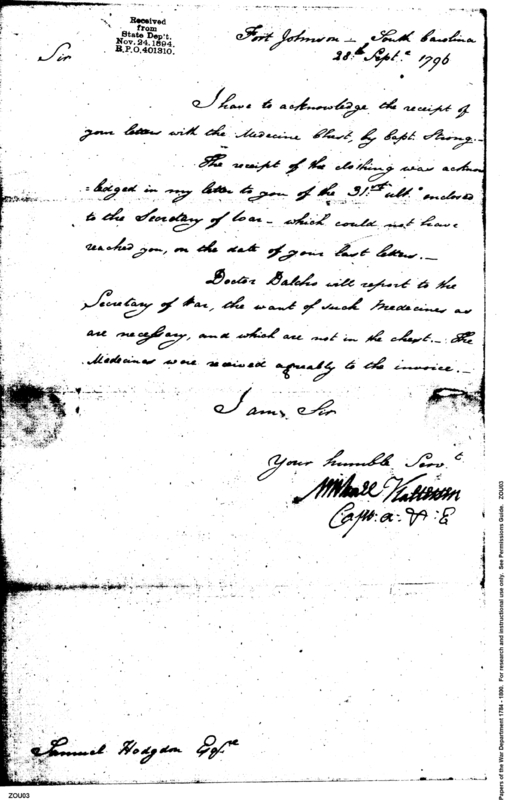 Received
from
State Dep't.
Nov. 24. 1894.
B,P,O,401310.
Fort Johnson – South Carolina
28th Septr 1796
Sir
I have to acknowledge the receipt of
your letters with the Medicine Chest, by Capt. Strong. –
The receipt of the clothing was acknow
=ledged in my letter to you of the 31st ulto enclosed
to the Secretary of War – which could not have
reached you, on the date of your last letters. –
Doctor Dalcho will report to the
Secretary of War, the want of such Medicines as
are necessary, and which are not in the chest. – The
Medicines were received agreably to the invoice. –
I am, Sir
Your humble Servt
Michael Kalteisen
Capt. A. & E
Samuel Hodgdon Esqre
ZOU03
Papers of the War Department 1784 - 1800. For research and instructional use only. See Permissions Guide. ZOU03